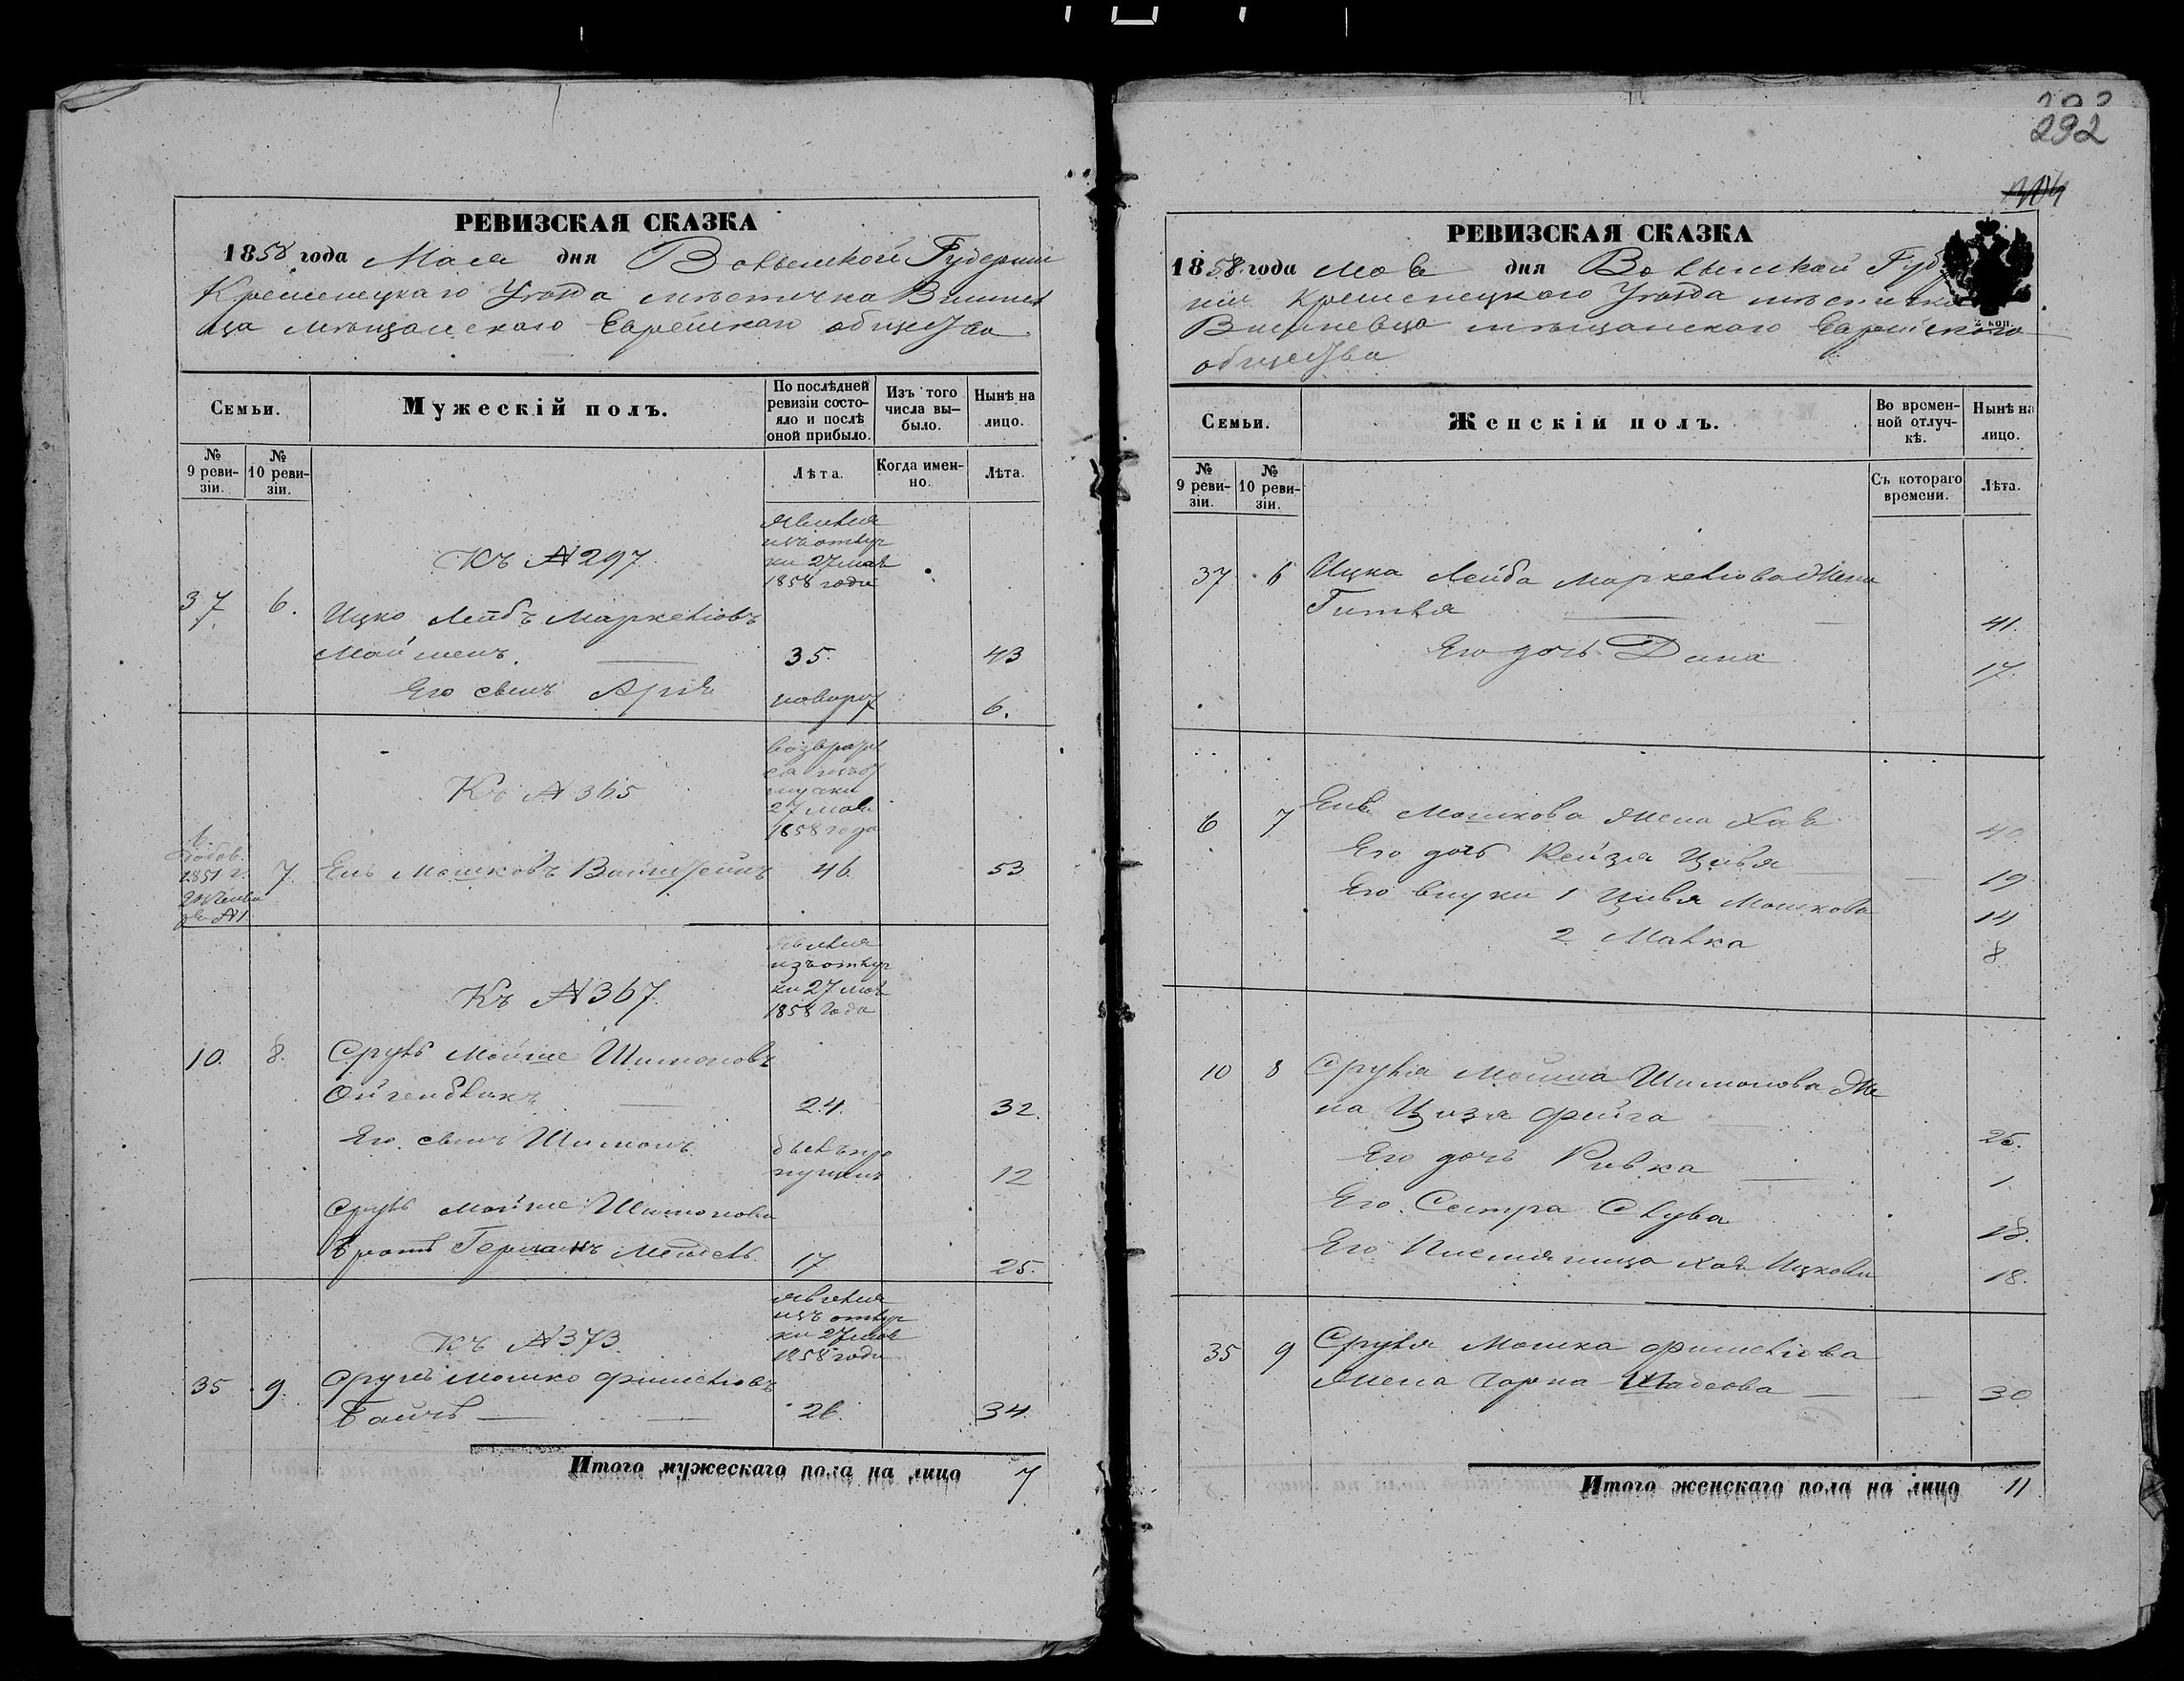 292
РЕВИЗСКАЯ СКАЗКА
1858 года Мая дня Волынской Губернии
Кременецкаго Уѣзда мѣстичка Вишнев
ца мѣщанскаго Еврейскаго общества
Семьи.
Мужескій полъ.
По послѣдней ревизіи состо-
яло и послѣ оной прибыло.
Изъ того числа вы-
было.
Нынѣ на лицо.
№ 9 реви-
зіи.
№ 10 реви-
зіи.
Лѣта.
Когда имен-
но.
Лѣта.
Къ №297
явился
изъ отлуч
ки 27 мая
1858 года
37. 6. Ицко Лейбъ Маркеліовъ
35. 43
Его сынъ Арія новорож 6.
Къ №365
возврат
27 мая
1858 года
1851 г.
7. Ель Мошковъ Вайнштейнъ 46. 53
Къ №367.
явился
изъ отлуч
ки 27 мая
1858 года
10. 8. Сруль Мойше Шимоновъ
Ойгенбликъ 24. 32.
Его сынъ Шимонъ былъ про
пущенъ 12
Сруля Мойше Шимонова
братъ Германъ Мендель 17 25.
Къ №373.
явился
изъ отлуч
ки 27 мая
1858 года
35 9. Сруль Мошко Фишеліовъ
26. 34.
Итого мужескаго пола на лицо 7
РЕВИЗСКАЯ СКАЗКА
1858 года мая дня Волынской Губер
ніи Кременецкого Уѣзда мѣстичка
Вишневца мѣщанскаго Еврейского
общества
2 коп.
Семьи.
Женскій полъ.
Во времен-
ной отлуч-
кѣ.
Нынѣ на лицо.
№ 9 реви-
зіи.
№ 10 реви-
зіи.
Съ котораго времени.
Лѣта.
37 6 Ицка Лейба Маркеліова жена
Гитля 41.
Его дочь Дина 17.
6 7 Еля Мошкова жена Хая 40.
Его дочь Рейзя Цивя 19
Его внуки 1 Цивя Мошкова 14
2 Малка 8
10 8 Срулія Мойша Шимонова Же
на Цизя Фейга 25.
Его дочь Ривка 1.
Его Сестра Слува 18.
Его Племяница Хая Ицкова 18.
35 9 Сруля Мошка Фишеліова
Жена Чарна 30
Итого женскаго пола на лицо 11